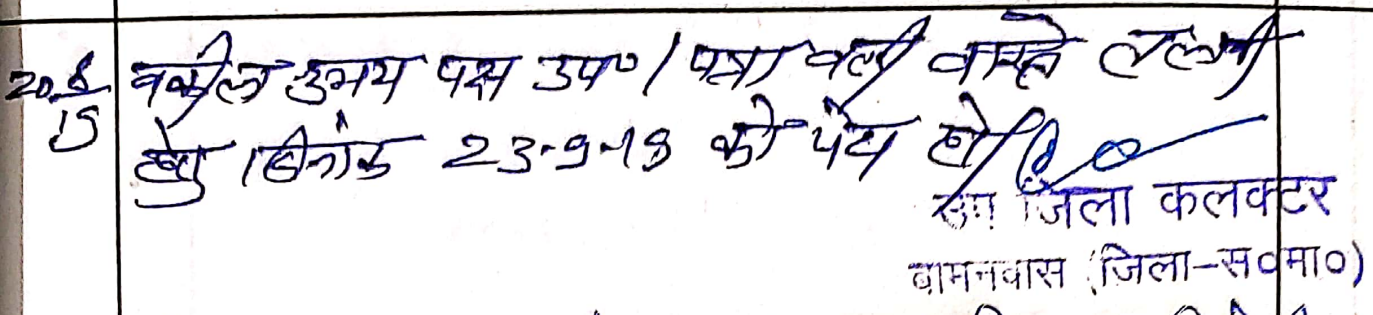 20.6/19 वकील उभय पक्ष उप० / पत्रावली वास्ते तलबी
हेतु दिनांक 23-9-19 को पेश हो।
उप जिला कलक्टर
बामनवास (जिला-स०मा०)